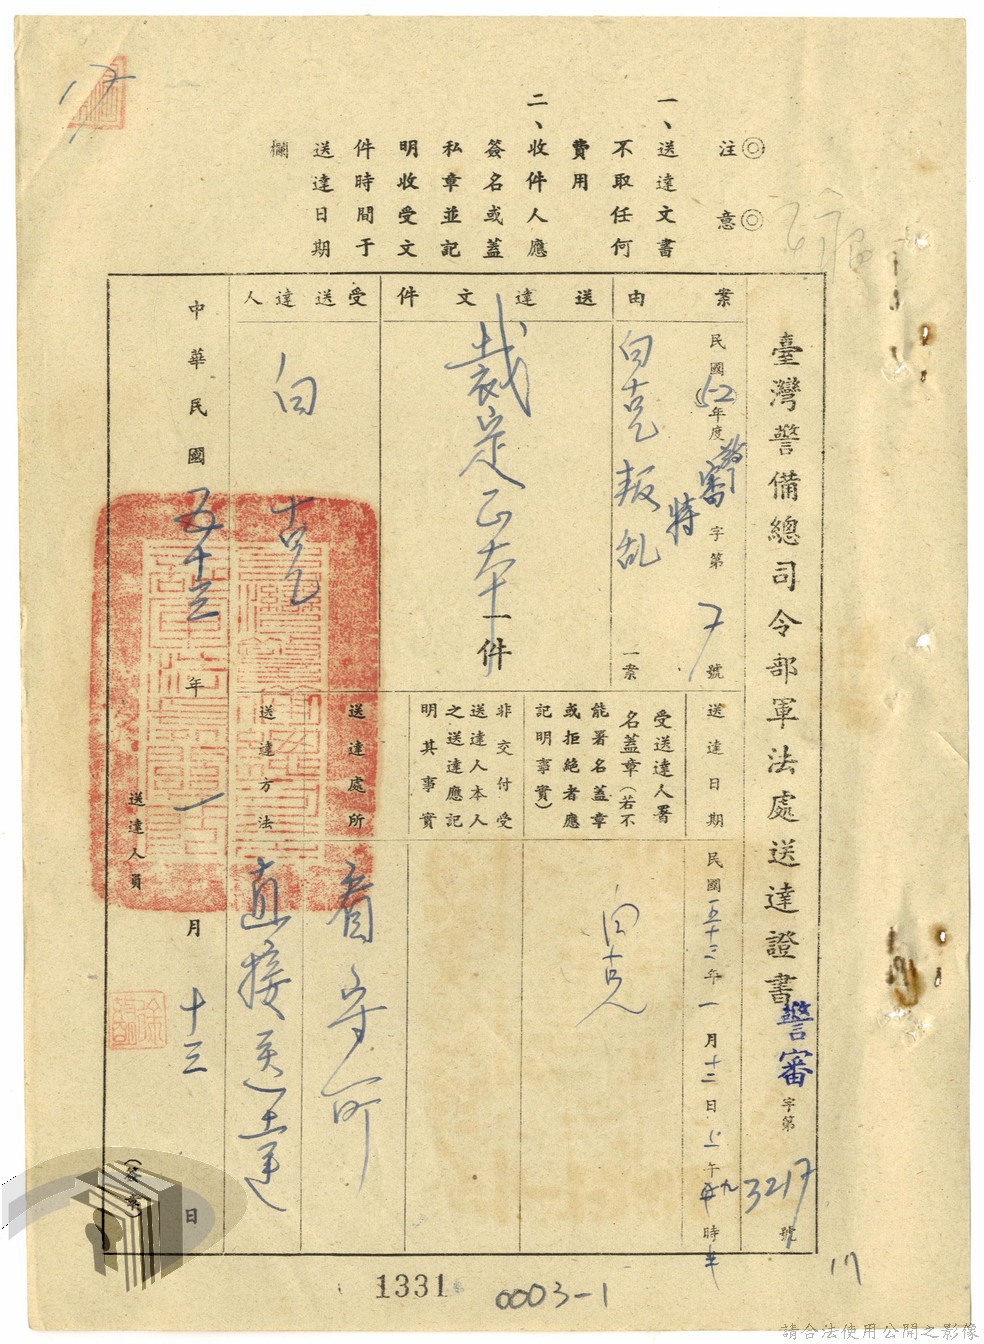 ◎注意◎
一、送達文書
不取任何
費用
二、收件人應
簽名或蓋
私章並記
明收受文
件時間于
送達日期
欄
臺灣警備總司令部軍法處送達證書警審字第3217號
案由
民國52年度警審特字第7號
白克叛乱一案
送達文件
裁定正本一件
受送達人
白克
送達日期
民國五十三年一月十三日上午九時半
受送達人署
名蓋章(若不
能署名蓋章
或拒絕者應
記明事實)
白克
非交付受
送達人本人
之送達應記
明其事實
送達處所
看守所
送達方法
直接送達
中華民國五十三年一月十三日
送達人員
(簽章)
1331
0003-1
17
請合法使用公開之影像